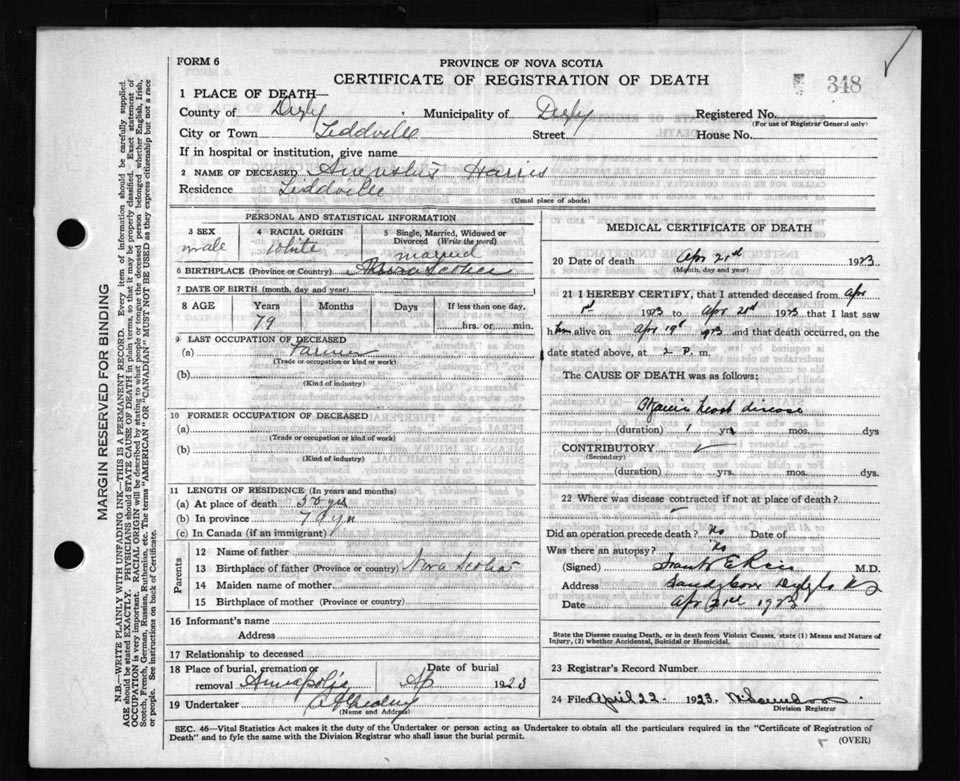 FORM 6
PROVINCE OF NOVA SCOTIA
CERTIFICATE OF REGISTRATION OF DEATH
348
1 PLACE OF DEATH—
County of Digby Municipality of Digby Registered No.
(For use of Registrar General only)
City or Town Street House No.
If in hospital or institution, give name
2 NAME OF DECEASED Augustus Harris
Residence
(Usual place of abode)
PERSONAL AND STATISTICAL INFORMATION
3 SEX 4 RACIAL ORIGIN 5 Single, Married, Widowed or Divorced (Write the word)
male White married
6 BIRTHPLACE (Province or Country) Nova Scotia
7 DATE OF BIRTH (month, day and year)
8 AGE Years Months Days If less than one day,
79 hrs. or min.
9 LAST OCCUPATION OF DECEASED
(a) Farmer
(Trade or occupation or kind or work)
(b)
(Kind of industry)
10 FORMER OCCUPATION OF DECEASED
(a)
(Trade or occupation or kind of work)
(b)
(Kind of industry)
11 LENGTH OF RESIDENCE (In years and months)
(a) At place of death 50 yrs
(b) In province
(c) In Canada (if an immigrant)
Parents
12 Name of father
13 Birthplace of father (Province or country) Nova Scotia
14 Maiden name of mother
15 Birthplace of mother (Province or country)
16 Informant's name
Address
17 Relationship to deceased
18 Place of burial, cremation or Date of burial
removal Annapolis Ap 1923
19 Undertaker
(Name and Address)
MEDICAL CERTIFICATE OF DEATH
20 Date of death Apr 21st 1923
(Month, day and year)
21 I HEREBY CERTIFY, that I attended deceased from Apr
1st 1923 to Apr 21st 1923 that I last saw
him alive on Apr 19th 1923 and that death occurred, on the
date stated above, at 2 P. m.
The CAUSE OF DEATH was as follows:
Organic heart disease
(duration) 1 yrs mos. dys
CONTRIBUTORY
(Secondary)
(duration) yrs. mos. dys.
22 Where was disease contracted if not at place of death?
Did an operation precede death? No Date of
Was there an autopsy? No
(Signed) Frank E Rice M.D.
Address Sandy Cove Digby Co NS
Date Apr 21st 1923
State the Disease causing Death, or in death from Violent Causes, state (1) Means and Nature of
Injury, (2) whether Accidental, Suicidal or Homicidal.
23 Registrar's Record Number
24 Filed April 22 1923.
Division Registrar
SEC. 46—Vital Statistics Act makes it the duty of the Undertaker or person acting as Undertaker to obtain all the particulars required in the "Certificate of Registration of
Death" and to fyle the same with the Division Registrar who shall issue the burial permit.
(OVER)
MARGIN RESERVED FOR BINDING
N.B.—WRITE PLAINLY WITH UNFADING INK—THIS IS A PERMANENT RECORD. Every item of information should be carefully supplied.
AGE should be stated EXACTLY. PHYSICIANS should STATE CAUSE OF DEATH in plain terms, so that it may be properly classified. Exact statement of
OCCUPATION is very important. RACIAL ORIGIN will be described by stating to what people or tongue the deceased person belonged whether English, Irish,
Scotch, French, German, Russian, Ruthenian, etc. The terms "AMERICAN" OR "CANADIAN" MUST NOT BE USED as they express citizenship but not a race
or people. See instructions on back of Certificate.